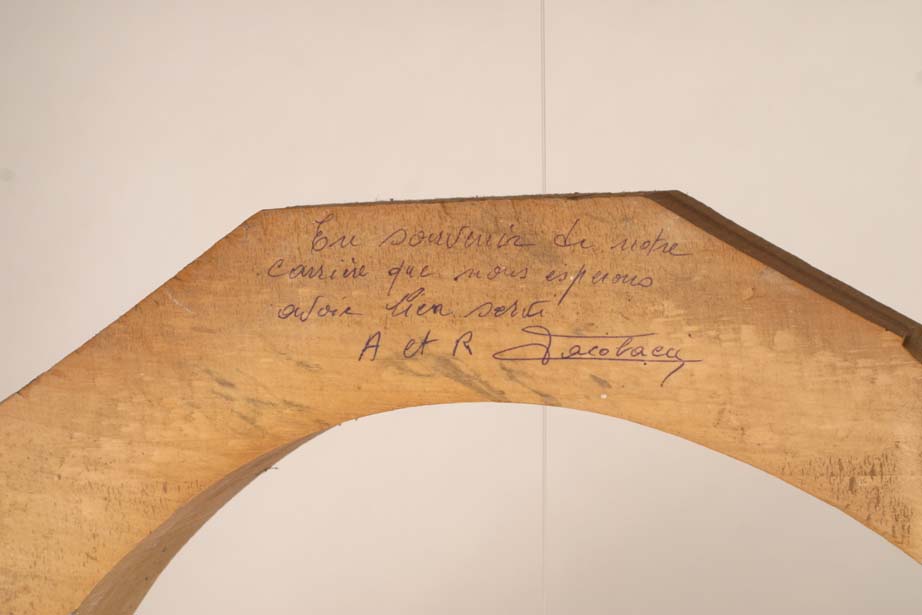 En souvenir de notre
carrière que nous esperons
avoir bien servi
A et R Jacobacci